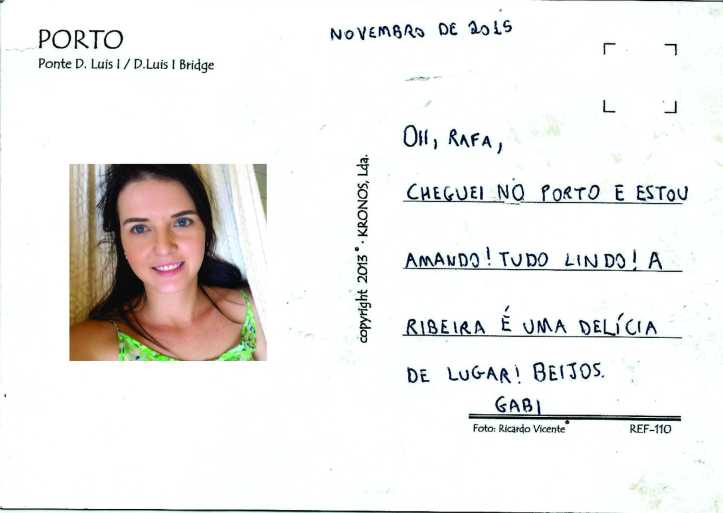 PORTO
Ponte D. Luis I / D.Luis I Bridge
NOVEMBRO DE 2015
OII, RAFA,
CHEGUEI NO PORTO E ESTOU
AMANDO! TUDO LINDO! A
RIBEIRA É UMA DELÍCIA
DE LUGAR! BEIJOS.
GABI
copyright 2013 · KRONOS, Lda.
Foto: Ricardo Vicente
REF-110